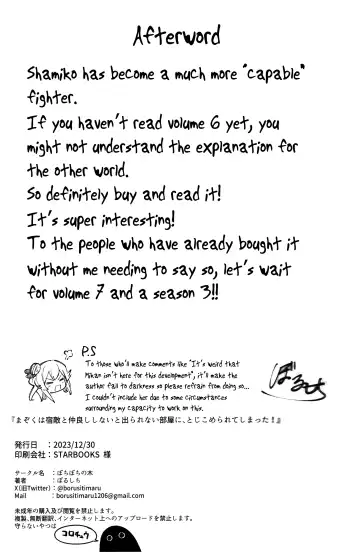 Afterword
Shamiko has become a much more "capable"
fighter.
If you haven't read volume 6 yet, you
might not understand the explanation for
the other world.
So definitely buy and read it!
It's super interesting!
To the people who have already bought it
without me needing to say so, let's wait
for volume 7 and a season 3!!
P.S
To those who'll make comments like "It's weird that
Mikan isn't here for this development", it'll make the
author fall to darkness so please refrain from doing so...
I couldn't include her due to some circumstances
surrounding my capacity to work on this.
ぼるしち
『まぞくは宿敵と仲良ししないと出られない部屋に、とじこめられてしまった！』
発行日　：2023/12/30
印刷会社：STARBOOKS 様
サークル名　：ぼちぼちの木
著者　　　　：ぼるしち
X(旧Twitter)：@borusitimaru
Mail　　　　：borusitimaru1206@gmail.com
未成年の購入及び閲覧を禁止します。
複製、無断翻訳、インターネット上へのアップロードを禁止します。
守らないやつは
コロチュウ